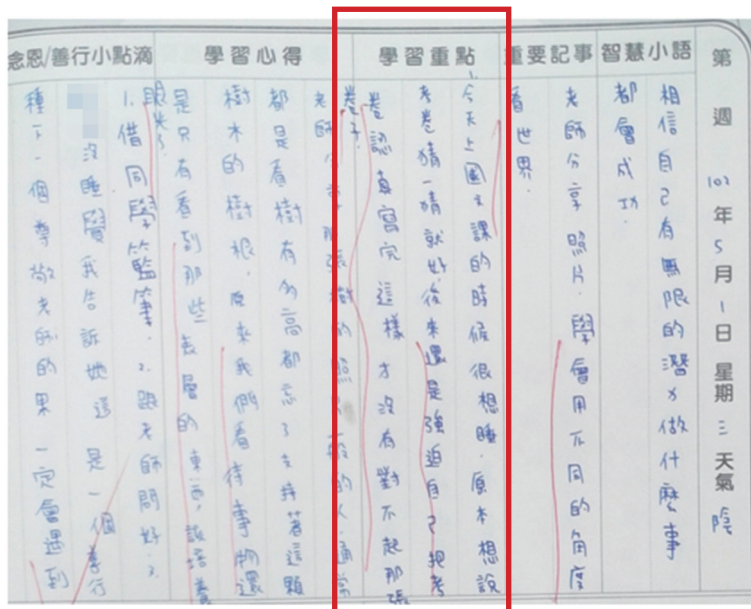 第 週 102年5月1日 星期三 天氣 陰
智慧小語
相信自己有無限的潛力做什麼事
都會成功.
重要記事
老師分享照片.學會用不同的角度
看世界.
學習重點
今天上國文課的時候很想睡.原本想說
考卷猜一猜就好後來還是強迫自己把考
卷認真寫完這樣才沒有對不起那張
卷子.
學習心得
老師分享那張樹的照片一般的人通常
都是看樹有多高都忘了支持著這顆
樹木的樹根.原來我們看待事物還
是只有看到那些表層的東西,該培養
眼光了.
念恩/善行小點滴
1.借同學藍筆.2.跟老師問好.3.
沒睡覺我告訴她這是一個善行
種下一個尊敬老師的果一定會遇到